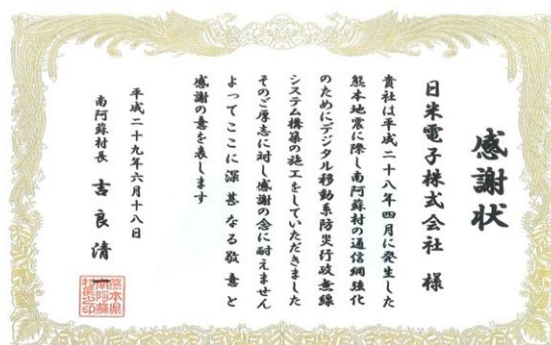 感謝状
日米電子株式会社 様
貴社は平成二十八年四月に発生した
熊本地震に際し南阿蘇村の通信網強化
のためにデジタル移動系防災行政無線
システム構築の施工をしていただきました
そのご厚志に対し感謝の念に耐えません
よってここに深甚なる敬意と
感謝の意を表します
平成二十九年六月十八日
南阿蘇村長 吉良清一
熊本県
南阿蘇
村長之印